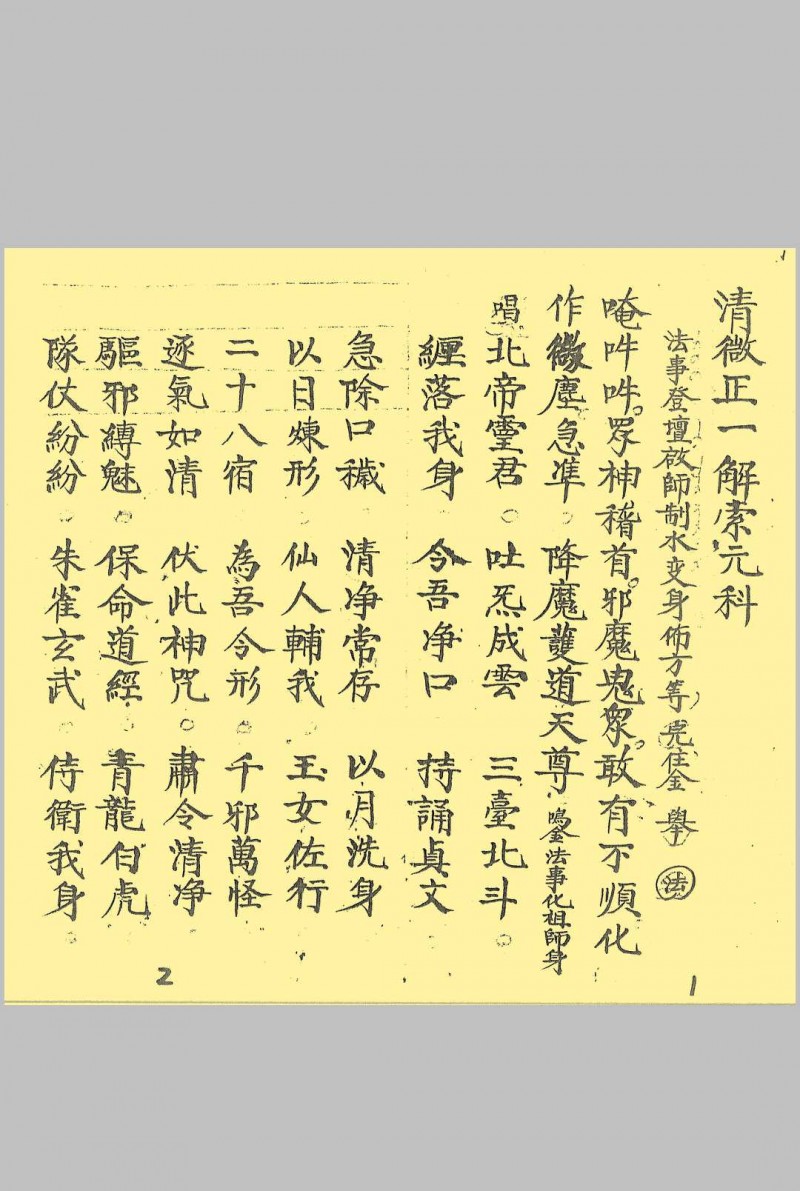 清微正一解索元科
法事登壇啟師制水变身佈方等完住金 舉 法
唵吽吽。眾神稽首。邪魔鬼眾。敢有不順化
作微塵急準。降魔護道天尊 鳴金法事化祖師身
唱北帝靈君。吐炁成雲 三臺北斗。
纏落我身 令吾净口 持誦貞文
急除口穢 清净常存 以月洗身
以日煉形 仙人輔我 玉女佐行
二十八宿 為吾令形。千邪萬怪
逐氣如清 伏此神咒。肅令清净
驅邪縛魅。保命道經。青龍白虎
隊仗紛紛。朱雀玄武。侍衛我身。
1
2